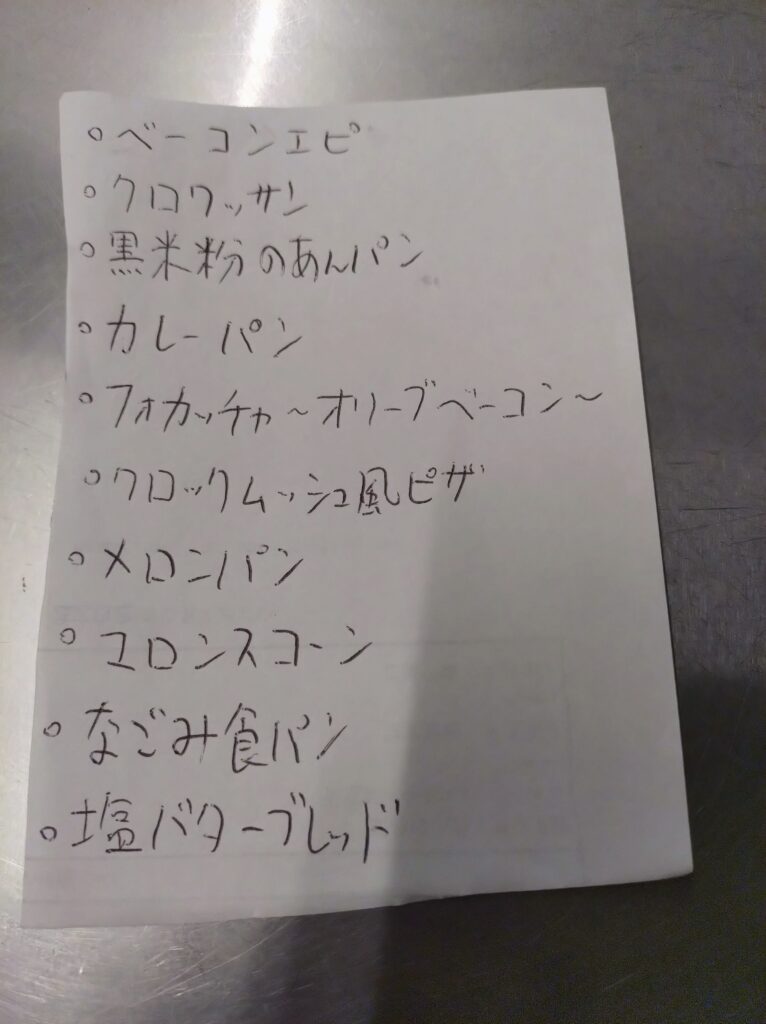 ○ベーコンエピ
○クロワッサン
○黒米粉のあんパン
○カレーパン
○フォカッチャ～オリーブベーコン～
○クロックムッシュ風ピザ
○メロンパン
○ユロンスコーン
○なごみ食パン
○塩バターブレッド